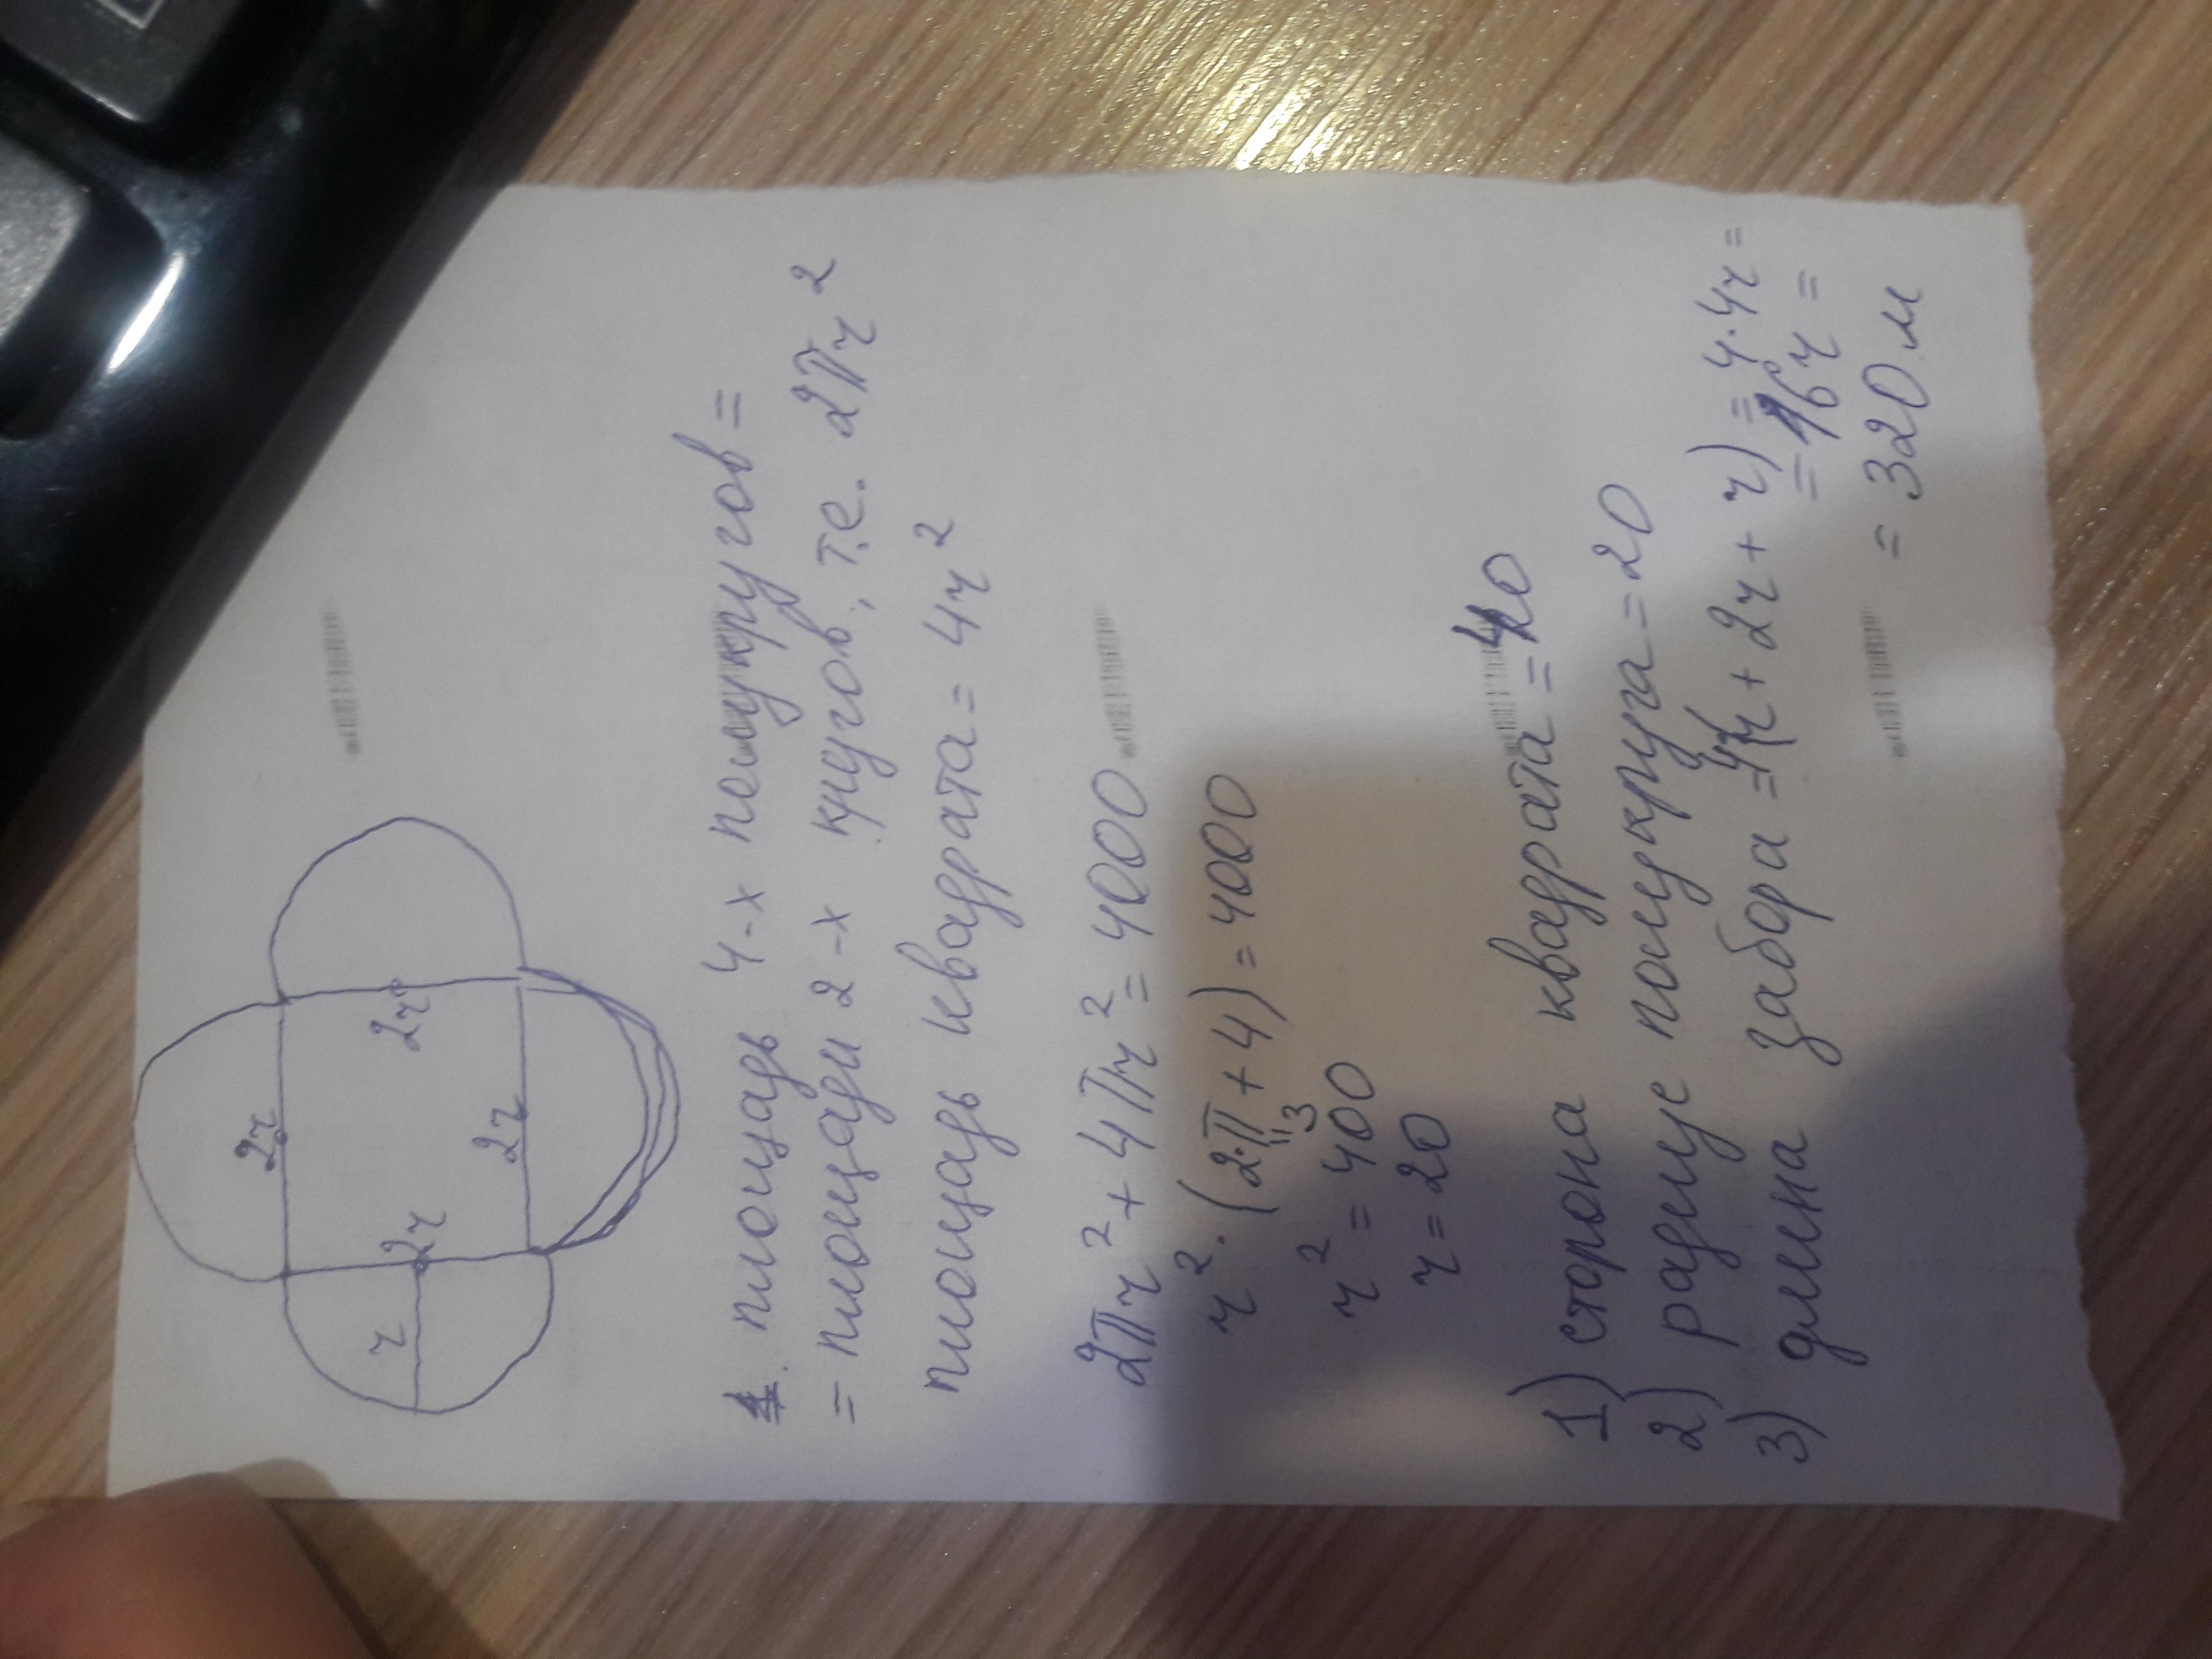 r
2r
2r
2r
2r
1. площадь 4-х полукругов =
= площади 2-х кругов, т.е. 2πr²
площадь квадрата = 4r²
2πr² + 4πr² = 4000
r² · (2·π + 4) = 4000
"
3
r² = 400
r = 20
1) сторона квадрата = 40
2) радиус полукруга = 20
3) длина забора = 4(r + 2r + r) = 4·4r =
= 16r =
= 320 м